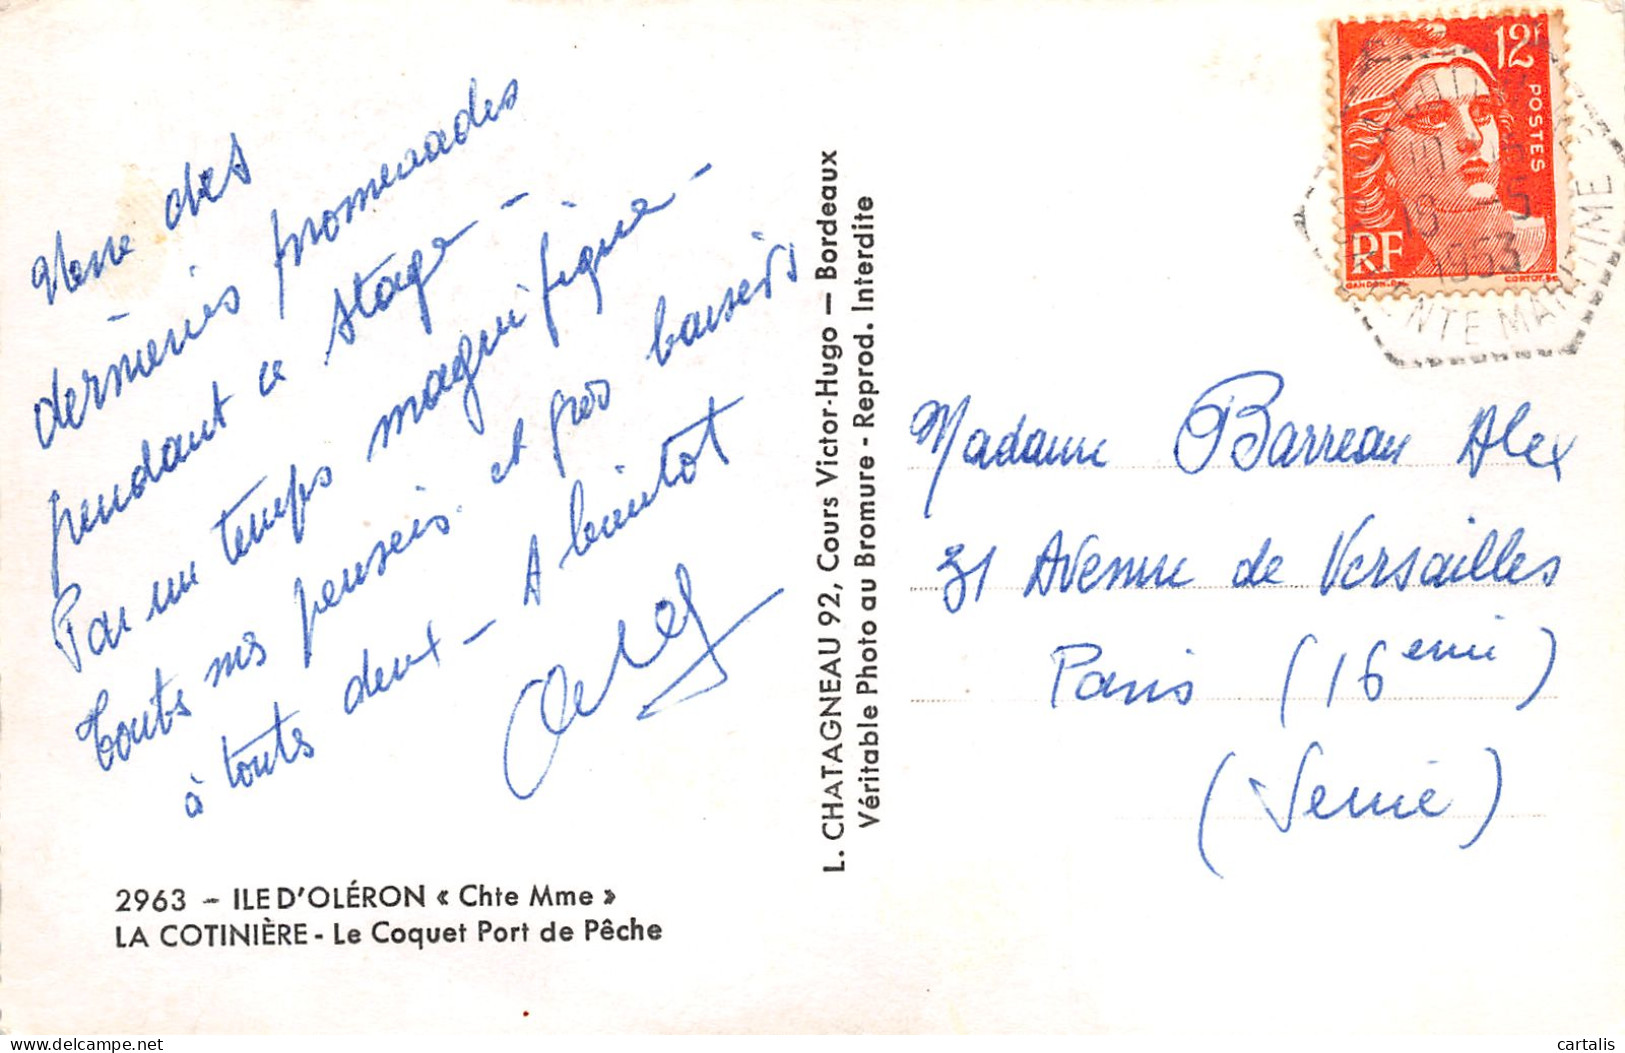 Une des
dernières promenades
pendant ce stage -
Par un temps magnifique -
Toutes mes pensées et gros baisers
à toutes deux - A bientôt
2963 - ILE D'OLÉRON « Chte Mme »
LA COTINIÈRE - Le Coquet Port de Pêche
L. CHATAGNEAU 92, Cours Victor-Hugo — Bordeaux
Véritable Photo au Bromure - Reprod. Interdite
12F
POSTES
RF
GANDON
CORTOT
19 -5
1953
ENTE MARITIME
Madame Barreau Alex
31 Avenue de Versailles
Paris (16eme)
(Seine)
cartalis